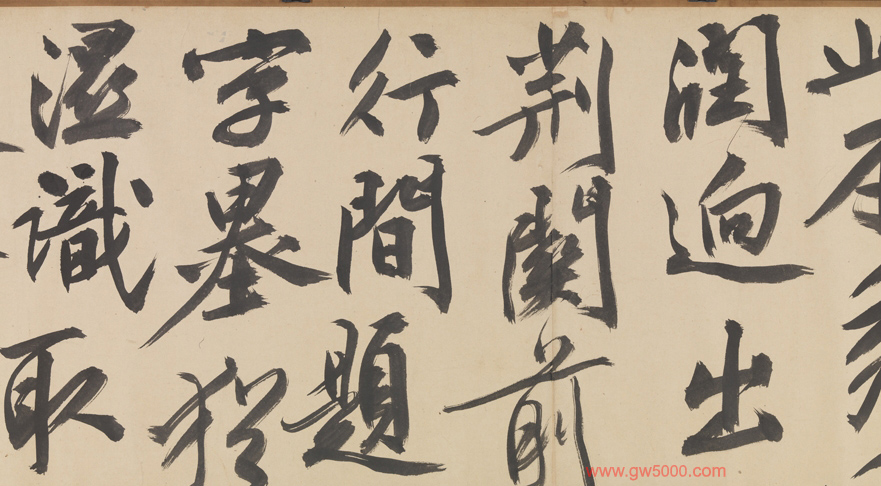 潤迥出
荆關前
行間題
字墨猶
濕識取
www.gw5000.com